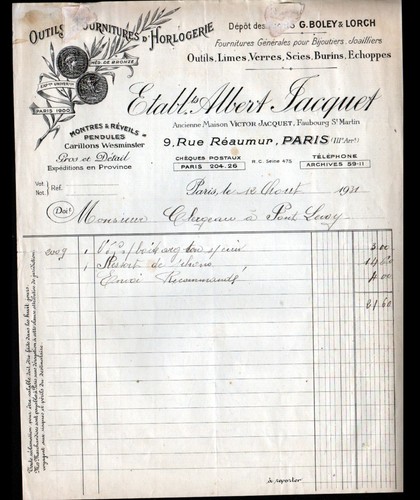 OUTILS & FOURNITURES D'HORLOGERIE
Dépôt des G. BOLEY & LORCH
Fournitures Générales pour Bijoutiers, Joailliers
Outils, Limes, Verres, Scies, Burins, Echoppes
MED. DE BRONZE
EXP.ON UNIVERSELLE
PARIS 1900
Etabl.ts Albert Jacquet
Ancienne Maison VICTOR JACQUET, Faubourg St Martin
MONTRES & RÉVEILS
PENDULES
Carillons Wesminster
Gros et Détail
Expéditions en Province
9, Rue Réaumur, PARIS (IIIe Arrt)
CHÈQUES POSTAUX
PARIS 204.26
R.C. Seine 475
TÉLÉPHONE
ARCHIVES 59-11
Vot.
Not.
Réf.
Paris, le 12 Août 1931
Doit
Monsieur à Pont Levoy
1
3 00
1 Ressort de 14 60
Envoi Recommandé 4 00
21.60
à reporter